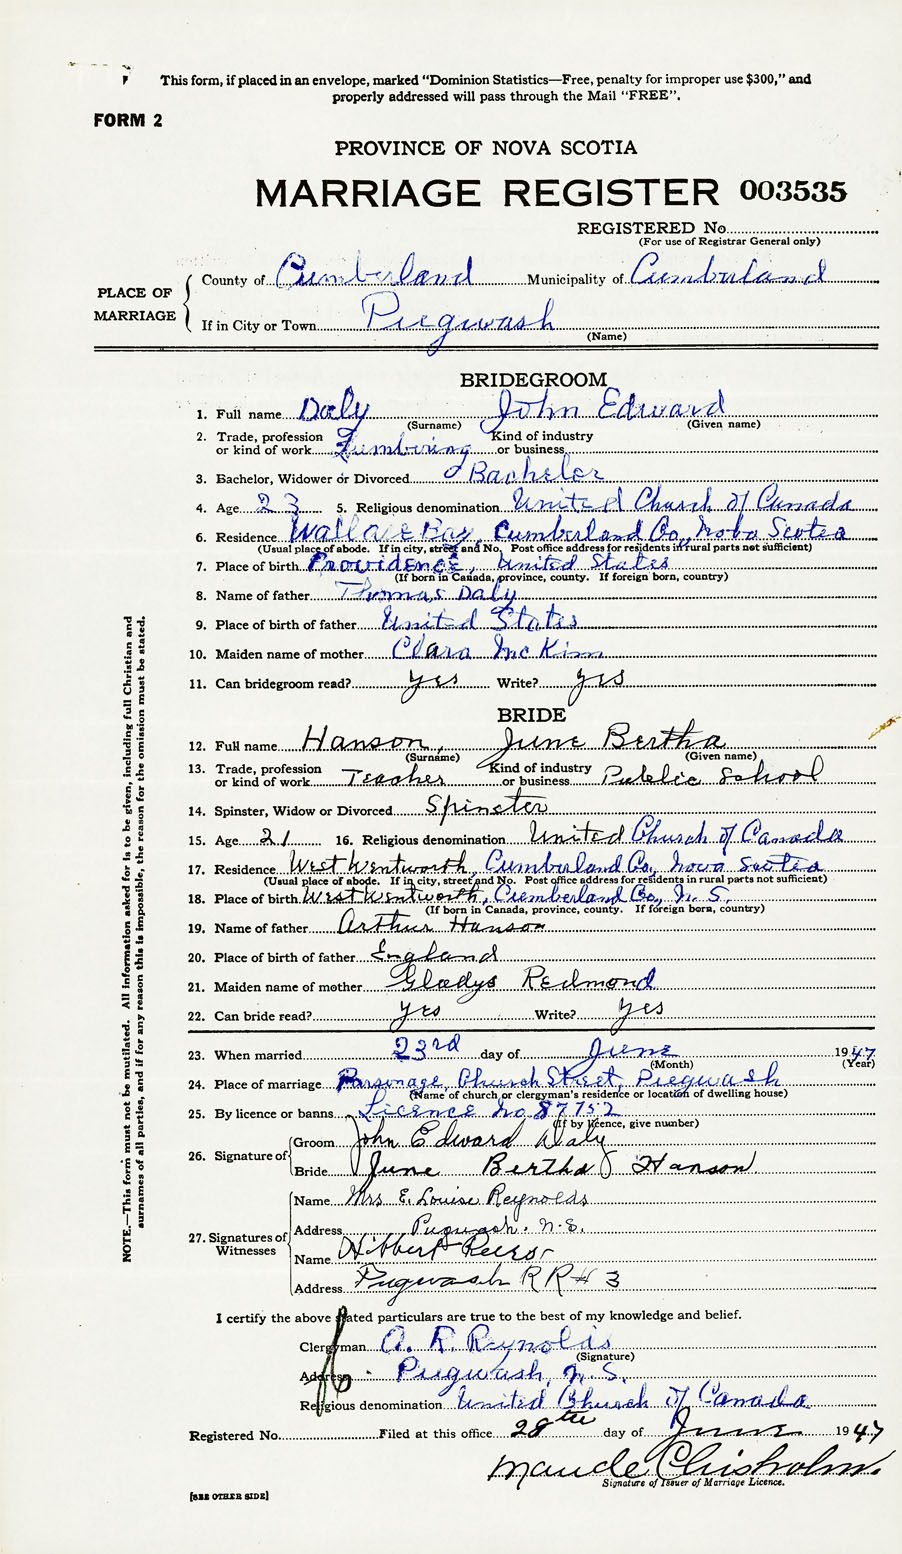 This form, if placed in an envelope, marked "Dominion Statistics—Free, penalty for improper use $300," and
properly addressed will pass through the Mail "FREE".
FORM 2
PROVINCE OF NOVA SCOTIA
MARRIAGE REGISTER 003535
REGISTERED No.
(For use of Registrar General only)
PLACE OF MARRIAGE
County of Cumberland Municipality of Cumberland
If in City or Town Pugwash
(Name)
BRIDEGROOM
1. Full name Daly John Edward
(Surname) (Given name)
2. Trade, profession or kind of work Lumbering Kind of industry or business
3. Bachelor, Widower or Divorced Bachelor
4. Age 23 5. Religious denomination United Church of Canada
6. Residence Wallace Bay, Cumberland Co., Nova Scotia
(Usual place of abode. If in city, street and No. Post office address for residents in rural parts not sufficient)
7. Place of birth Providence, United States
(If born in Canada, province, county. If foreign born, country)
8. Name of father Thomas Daly
9. Place of birth of father United States
10. Maiden name of mother Clara McKim
11. Can bridegroom read? yes Write? yes
BRIDE
12. Full name Hanson, June Bertha
(Surname) (Given name)
13. Trade, profession or kind of work Teacher Kind of industry or business Public School
14. Spinster, Widow or Divorced Spinster
15. Age 21 16. Religious denomination United Church of Canada
17. Residence West Wentworth, Cumberland Co., Nova Scotia
(Usual place of abode. If in city, street and No. Post office address for residents in rural parts not sufficient)
18. Place of birth West Wentworth, Cumberland Co., N. S.
(If born in Canada, province, county. If foreign born, country)
19. Name of father Arthur Hanson
20. Place of birth of father England
21. Maiden name of mother Gladys Redmond
22. Can bride read? yes Write? yes
23. When married 23rd day of June 1947
(Month) (Year)
24. Place of marriage Parsonage, Church Street, Pugwash
(Name of church or clergyman's residence or location of dwelling house)
25. By licence or banns Licence No. 87752
(If by licence, give number)
26. Signature of
Groom John Edward Daly
Bride June Bertha Hanson
27. Signatures of Witnesses
Name Mrs. E. Louise Reynolds
Address Pugwash. N.S.
Name Hibbert
Address Pugwash R R # 3
I certify the above stated particulars are true to the best of my knowledge and belief.
Clergyman A. R. Reynolds
(Signature)
Address Pugwash, N. S.
Religious denomination United Church of Canada
Registered No. Filed at this office 28th day of June 1947
Maude Chisholm.
Signature of Issuer of Marriage Licence.
[SEE OTHER SIDE]
NOTE.—This form must not be mutilated. All information asked for is to be given, including full Christian and
surnames of all parties, and if for any reason this is impossible, the reason for the omission must be stated.